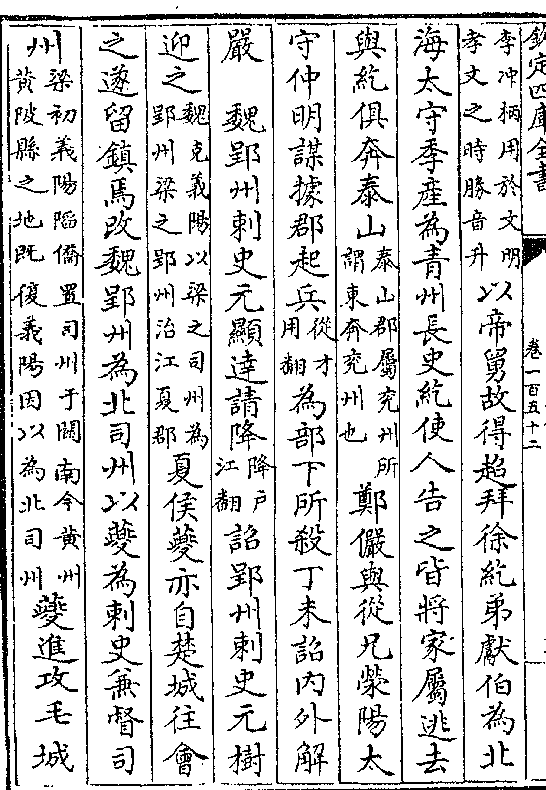 欽定四庫全書
卷一百五十二
李冲柄用於文明
孝文之時勝音升
以帝舅故得超拜徐紇弟獻伯為北
海太守季產為青州長史紇使人告之皆將家屬逃去
與紇俱奔泰山
泰山郡屬兖州所
謂東奔兖州也
鄭儼與從兄滎陽太
守仲明謀據郡起兵
從才
用翻
為部下所殺丁未詔内外解
嚴 魏郢州刺史元顯達請降
降户
江翻
詔郢州刺史元樹
迎之
魏克義陽以梁之司州為
郢州梁之郢州治江夏郡
夏侯夔亦自楚城往會
之遂留鎮焉改魏郢州為北司州以夔為刺史兼督司
州
梁初義陽陷僑置司州于關南今黄州
黄陂縣之地既復義陽因以為北司州
夔進攻毛城